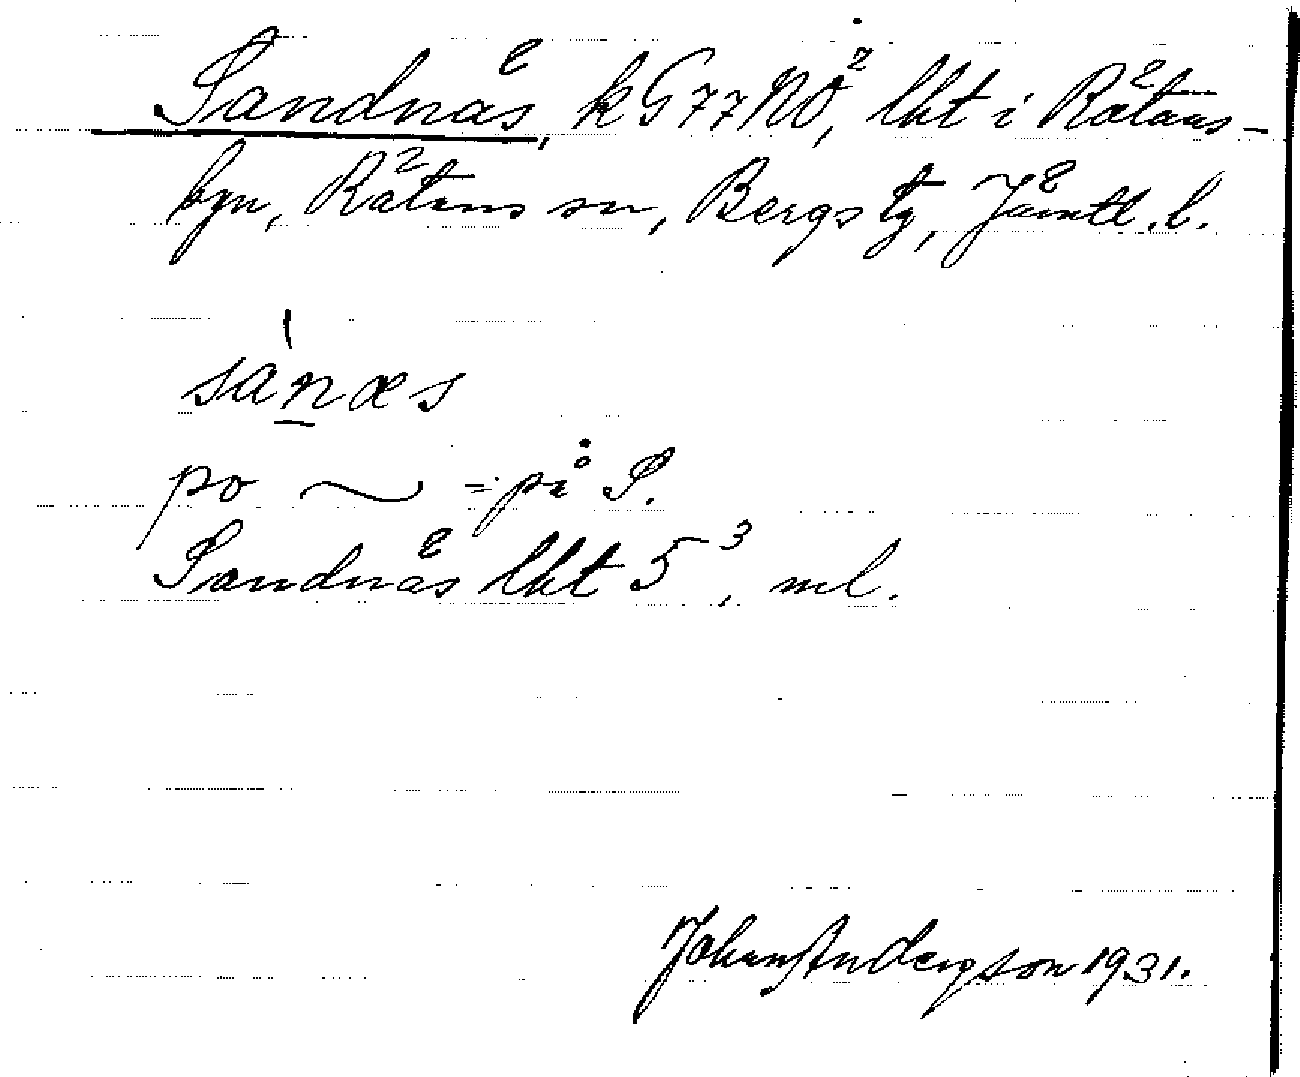 Sandnäs, k G77NÖ, lht i Rätans-
byn, Rätans sn, Bergs tg, Jämtl. l.
sanæs
po ~ = på S.
Sandnäs lht 5³, ml.
Johan Anderson 1931.